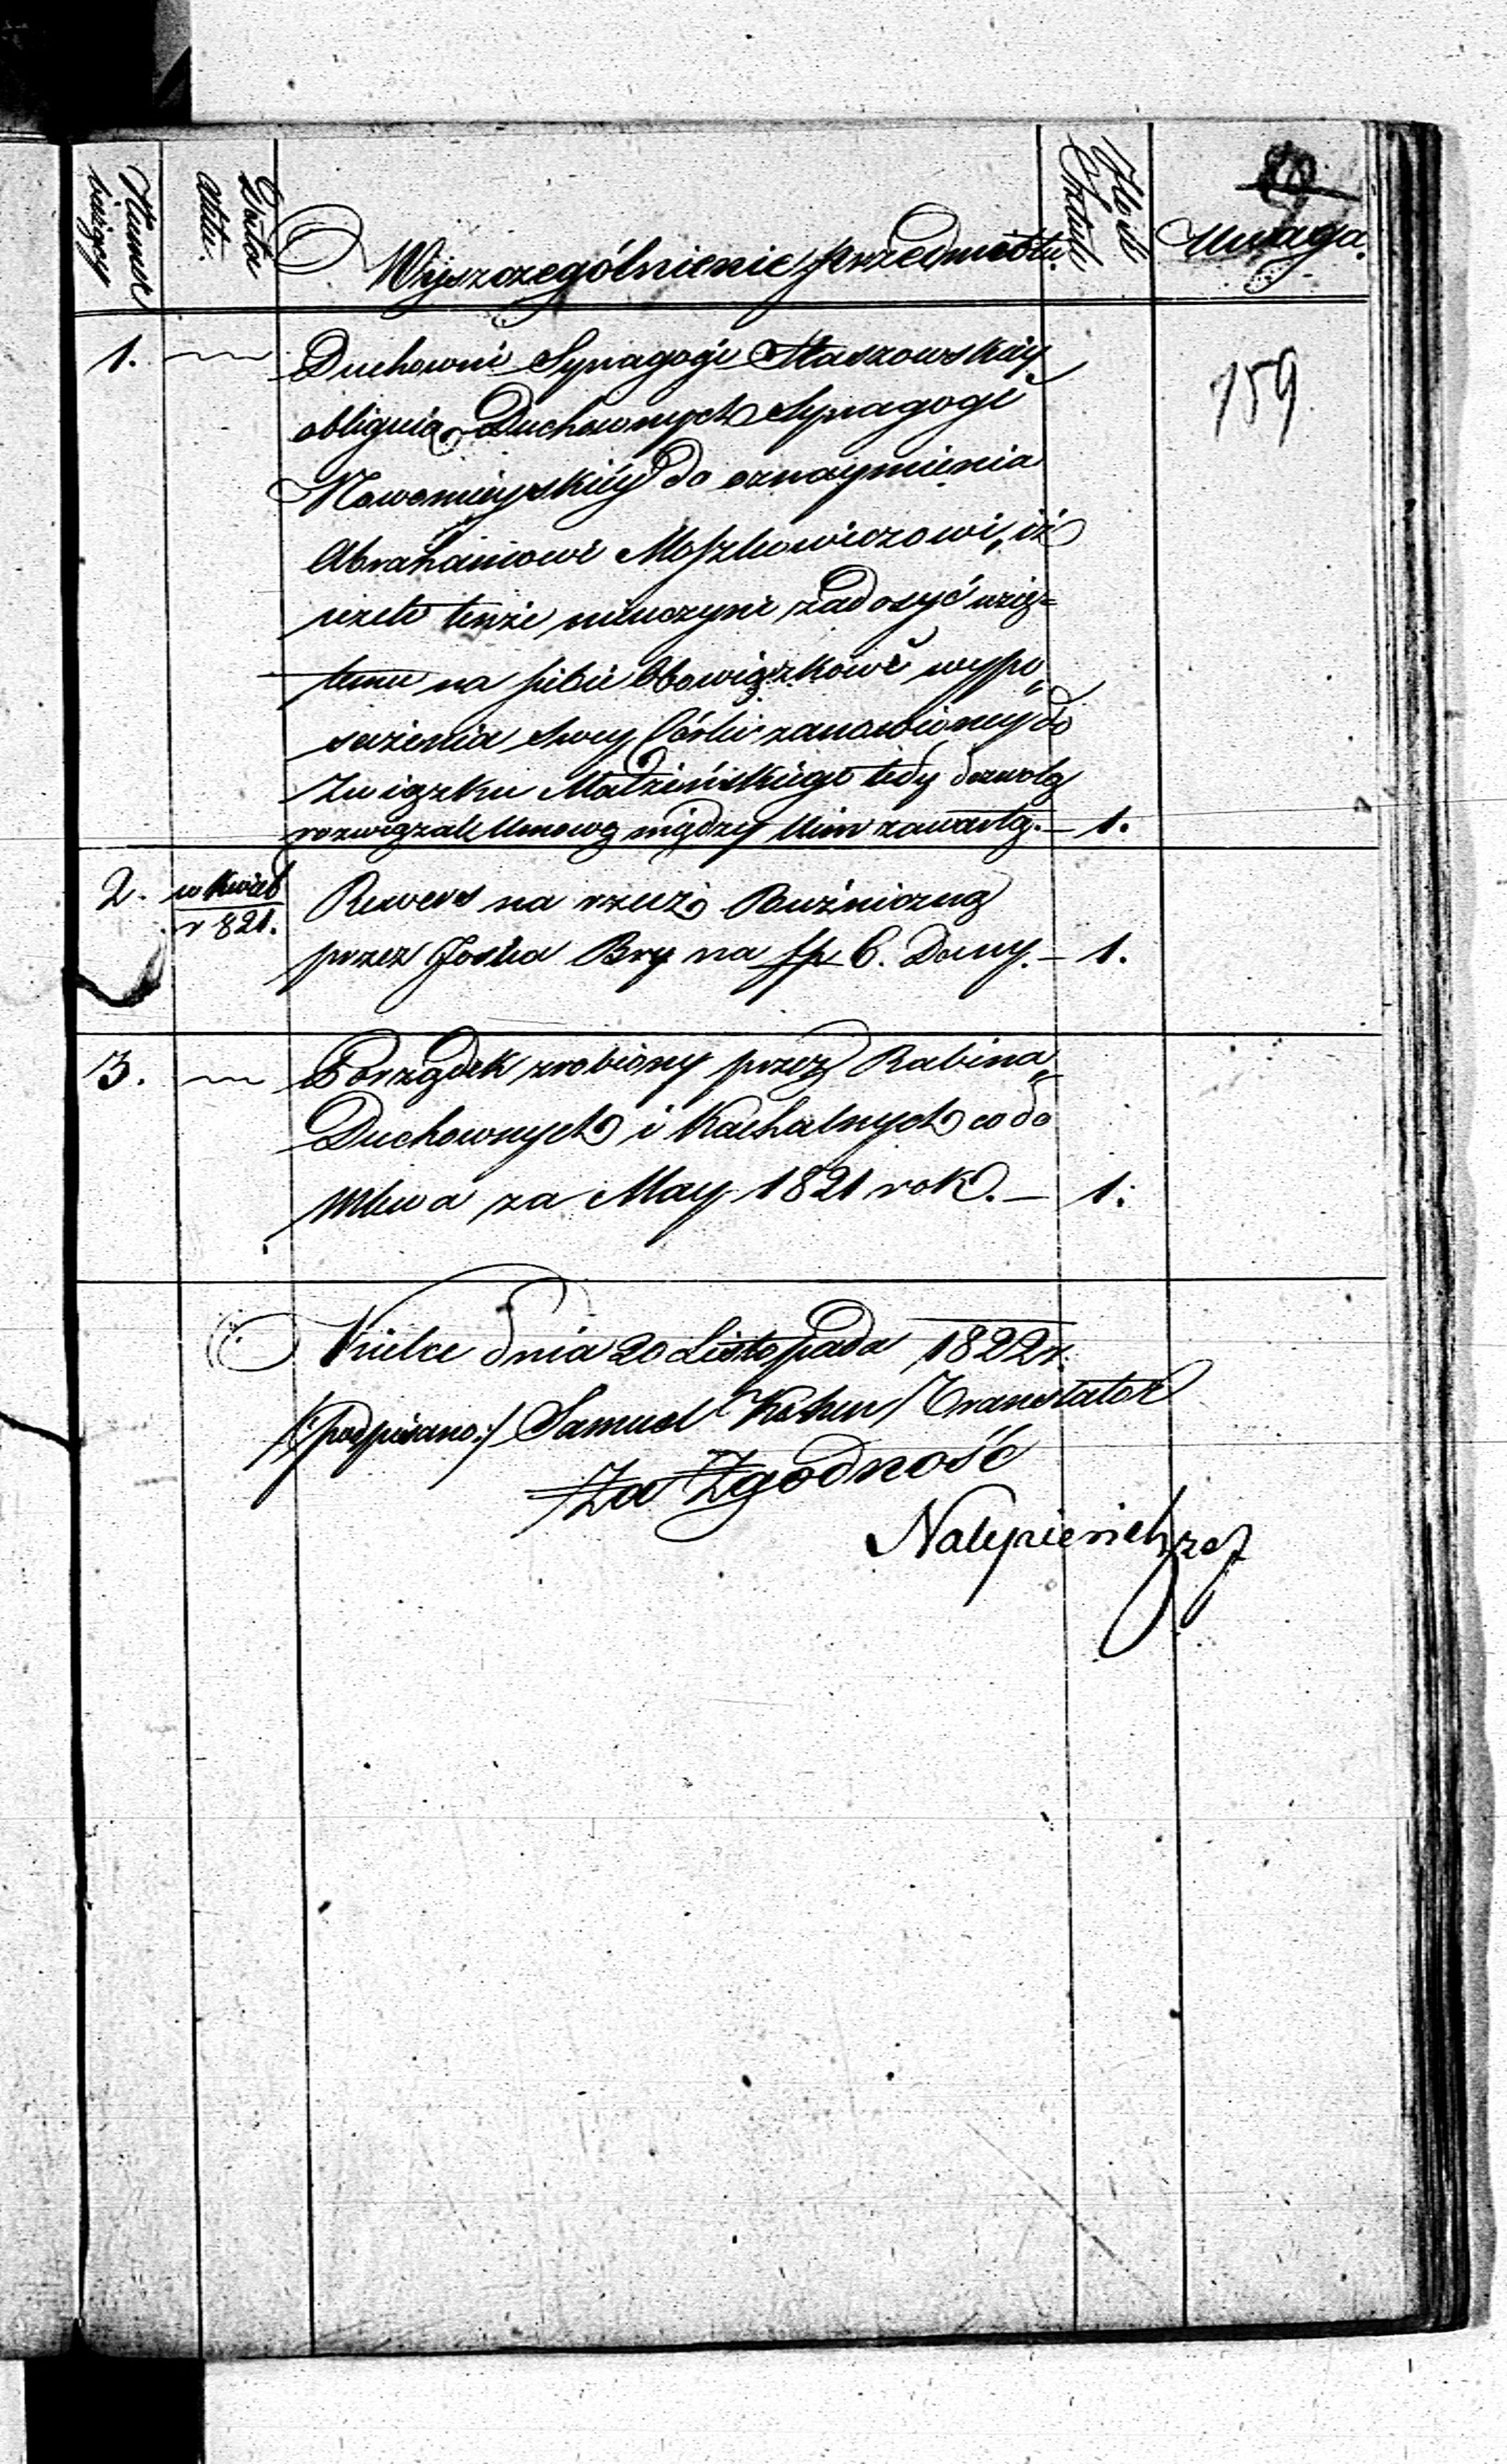 Numer bieżący
Data aktu.
Wyszczególnienie przedmiotu.
Ilość Sztuk
Uwaga.
159
1. Duchowni Synagogi Staszowskiéy
obliguią Duchownych Synagogi
Nowomieyskiéy do oznaymienia
Abrahamowi Moszkowiczowi, iż
ieżeli tenże nieuczyni zadosyć wzię=
temu na siebie Obowiązkowi wypo„
sażenia swey Córki zamówioney do
Związku Małżeńskiego tedy dozwolą
rozwiązać Umowę między Nim zawartą. — 1.
2. w Kwiet r 821. Rewers na rzecz Bużniczną
przez Joska Bry na fp 6. Dany. — 1.
3. Porządek zrobiony przez Rabina„
Duchownych i Kachalnych co do
Mlewa za May 1821 rok. — 1.
Kielce dnia 20 Listopada 1822 r.
/:podpisano:/ Samuel Kohen Translator
Za Zgodność